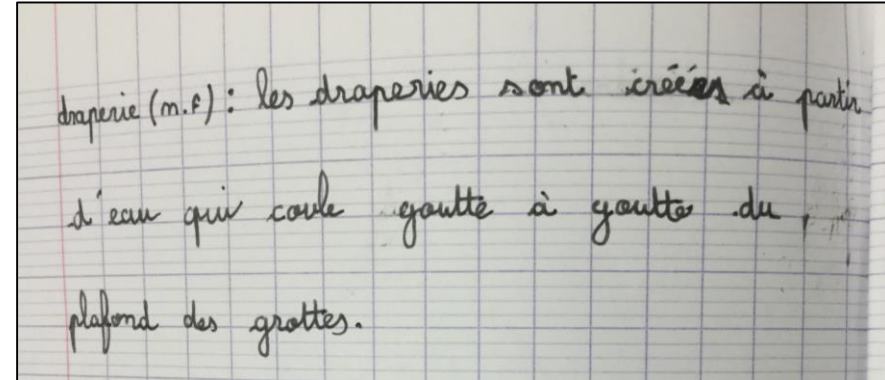 draperie (n.f) : les draperies sont créées à partir
d'eau qui coule goutte à goutte du
plafond des grottes.